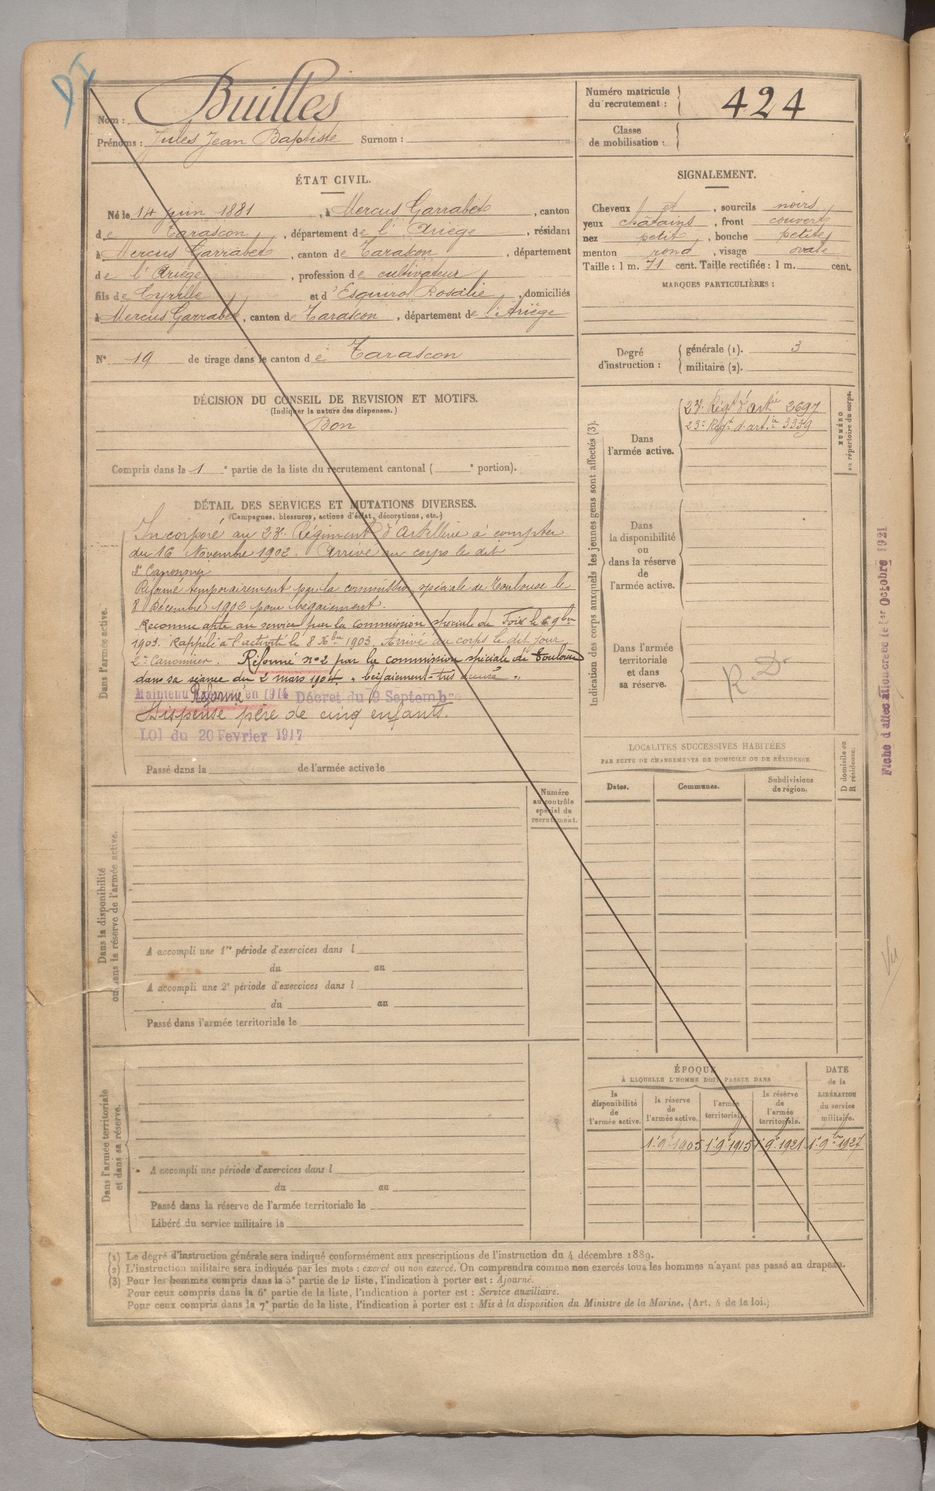 DI
Nom : Builles
Prénoms : Jules Jean Baptiste Surnom :
ÉTAT CIVIL.
Né le 14 juin 1881, à Mercus Garrabet, canton
de Tarascon, département de l'Ariège, résidant
à Mercus Garrabet, canton de Tarascon, département
de l'Ariège, profession de cultivateur
fils de Cyrille et d'Esquirol Rosalie, domiciliés
à Mercus Garrabet, canton de Tarascon, département de l'Ariège
N° 19 de tirage dans le canton de Tarascon
DÉCISION DU CONSEIL DE REVISION ET MOTIFS.
(Indiquer la nature des dispenses.)
Bon
Compris dans la 1 e partie de la liste du recrutement cantonal ( e portion).
DÉTAIL DES SERVICES ET MUTATIONS DIVERSES.
(Campagnes, blessures, actions d'éclat, décorations, etc.)
Dans l'armée active.
Incorporé au 23e Régiment d'artillerie à compter
du 16 Novembre 1902. Arrivé au corps le dit
Réformé temporairement par la commission spéciale de Toulouse le
8 Décembre 1902 pour bégaiement.
Reconnu apte au service par la commission spéciale de Foix le 6 9bre
1903. Rappelé à l'activité le 8 Xbre 1903. Arrivé au corps le dit jour
2e Canonnier. Réformé n°2 par la commission spéciale de Toulouse
dans sa séance du 2 mars 1904 "bégaiement très accusé".
Maintenu Réformé en 1914 Décret du 9 Septembre
Dispensé père de cinq enfants.
LOI du 20 Fevrier 1917
Passé dans la de l'armée active le
Numéro au contrôle spécial du recrutement.
Dans la disponibilité ou dans la réserve de l'armée active.
A accompli une 1re période d'exercices dans l
du au
A accompli une 2e période d'exercices dans l
du au
Passé dans l'armée territoriale le
Dans l'armée territoriale et dans sa réserve.
A accompli une période d'exercices dans l
du au
Passé dans la réserve de l'armée territoriale le
Libéré du service militaire le
Numéro matricule du recrutement : 424
Classe de mobilisation :
SIGNALEMENT.
Cheveux et, sourcils noirs
yeux châtains, front couvert
nez petit, bouche petite
menton rond, visage ovale
Taille : 1 m. 71 cent. Taille rectifiée : 1 m. cent.
MARQUES PARTICULIÈRES :
Degré d'instruction : générale (1). 3
militaire (2).
Indication des corps auxquels les jeunes gens sont affectés (3).
NUMÉRO au répertoire du corps.
Dans l'armée active.
23e Régt d'artie 2697
23e Regt d'artie 3359
Dans la disponibilité ou dans la réserve de l'armée active.
Dans l'armée territoriale et dans sa réserve.
R. D.
LOCALITÉS SUCCESSIVES HABITÉES
PAR SUITE DE CHANGEMENTS DE DOMICILE OU DE RÉSIDENCE
Dates. Communes. Subdivisions de région. D domicile ou R résidence.
ÉPOQUE
À LAQUELLE L'HOMME DOIT PASSER DANS
la disponibilité de l'armée active. la réserve de l'armée active. l'armée territoriale. la réserve de l'armée territoriale. DATE de la LIBÉRATION du service militaire.
1er 9bre 1905 1er 9bre 1915 1er 9bre 1921 1er 9bre 1927
(1) Le degré d'instruction générale sera indiqué conformément aux prescriptions de l'instruction du 4 décembre 1889.
(2) L'instruction militaire sera indiquée par les mots : exercé ou non exercé. On comprendra comme non exercés tous les hommes n'ayant pas passé au drapeau.
(3) Pour les hommes compris dans la 5e partie de la liste, l'indication à porter est : Ajourné.
Pour ceux compris dans la 6e partie de la liste, l'indication à porter est : Service auxiliaire.
Pour ceux compris dans la 7e partie de la liste, l'indication à porter est : Mis à la disposition du Ministre de la Marine. (Art. 4 de la loi.)
Vu